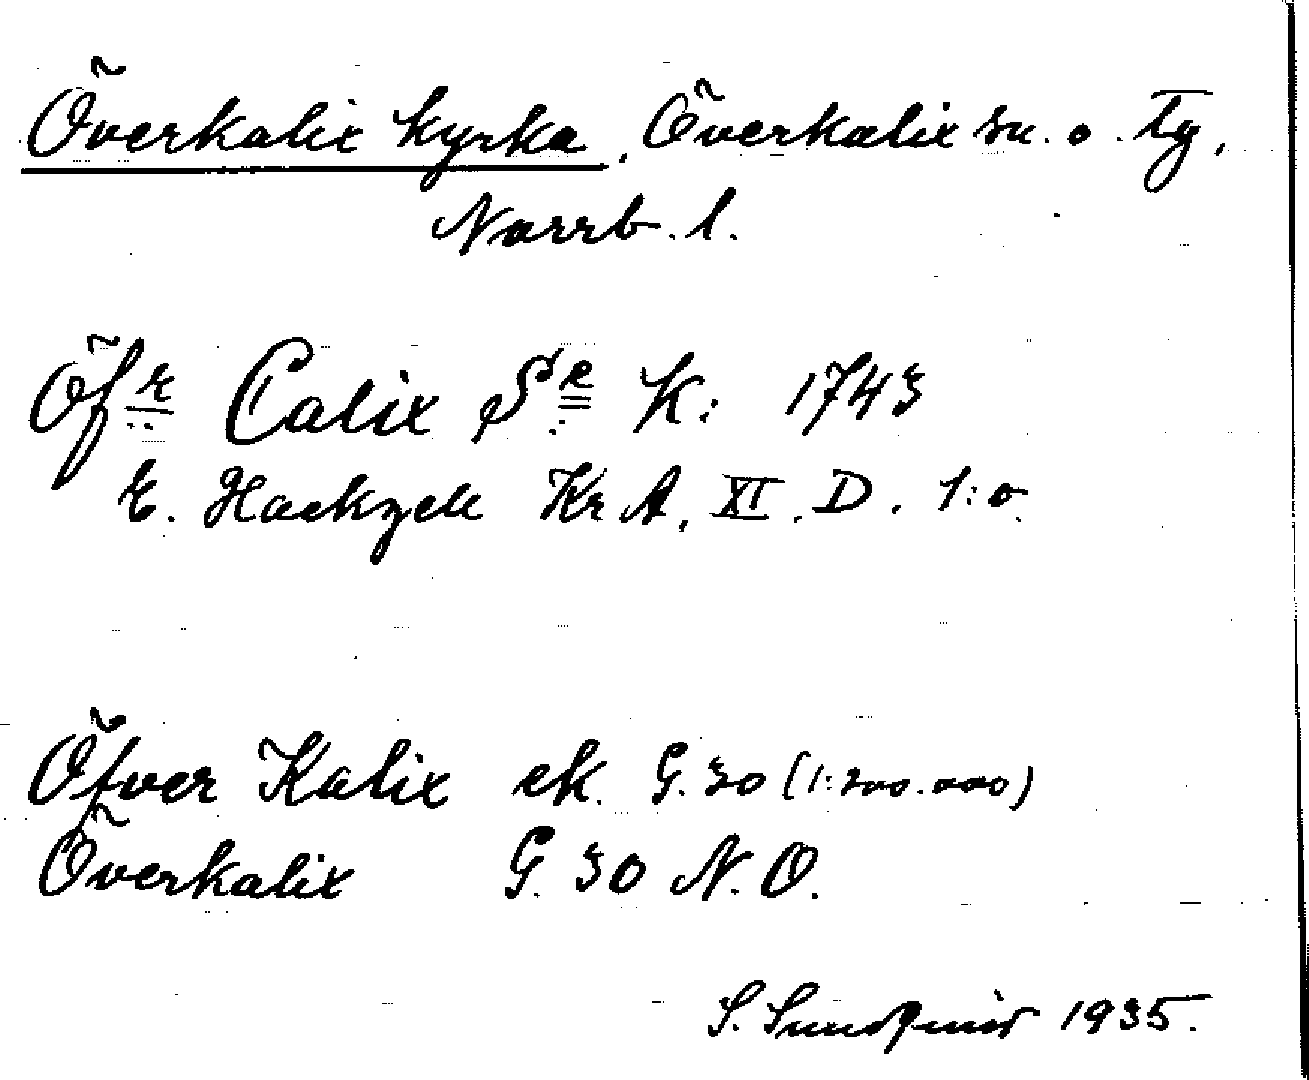 Överkalix kyrka, Överkalix sn. o. Tg,
Norrb. l.
Öfr Calix Se K: 1743
E. Hackzell Kr A, XI. D. 1:o
Öfver Kalix ck. G. 30 (1:200.000)
Överkalix G. 30 N. O.
S. Sundqvist 1935.